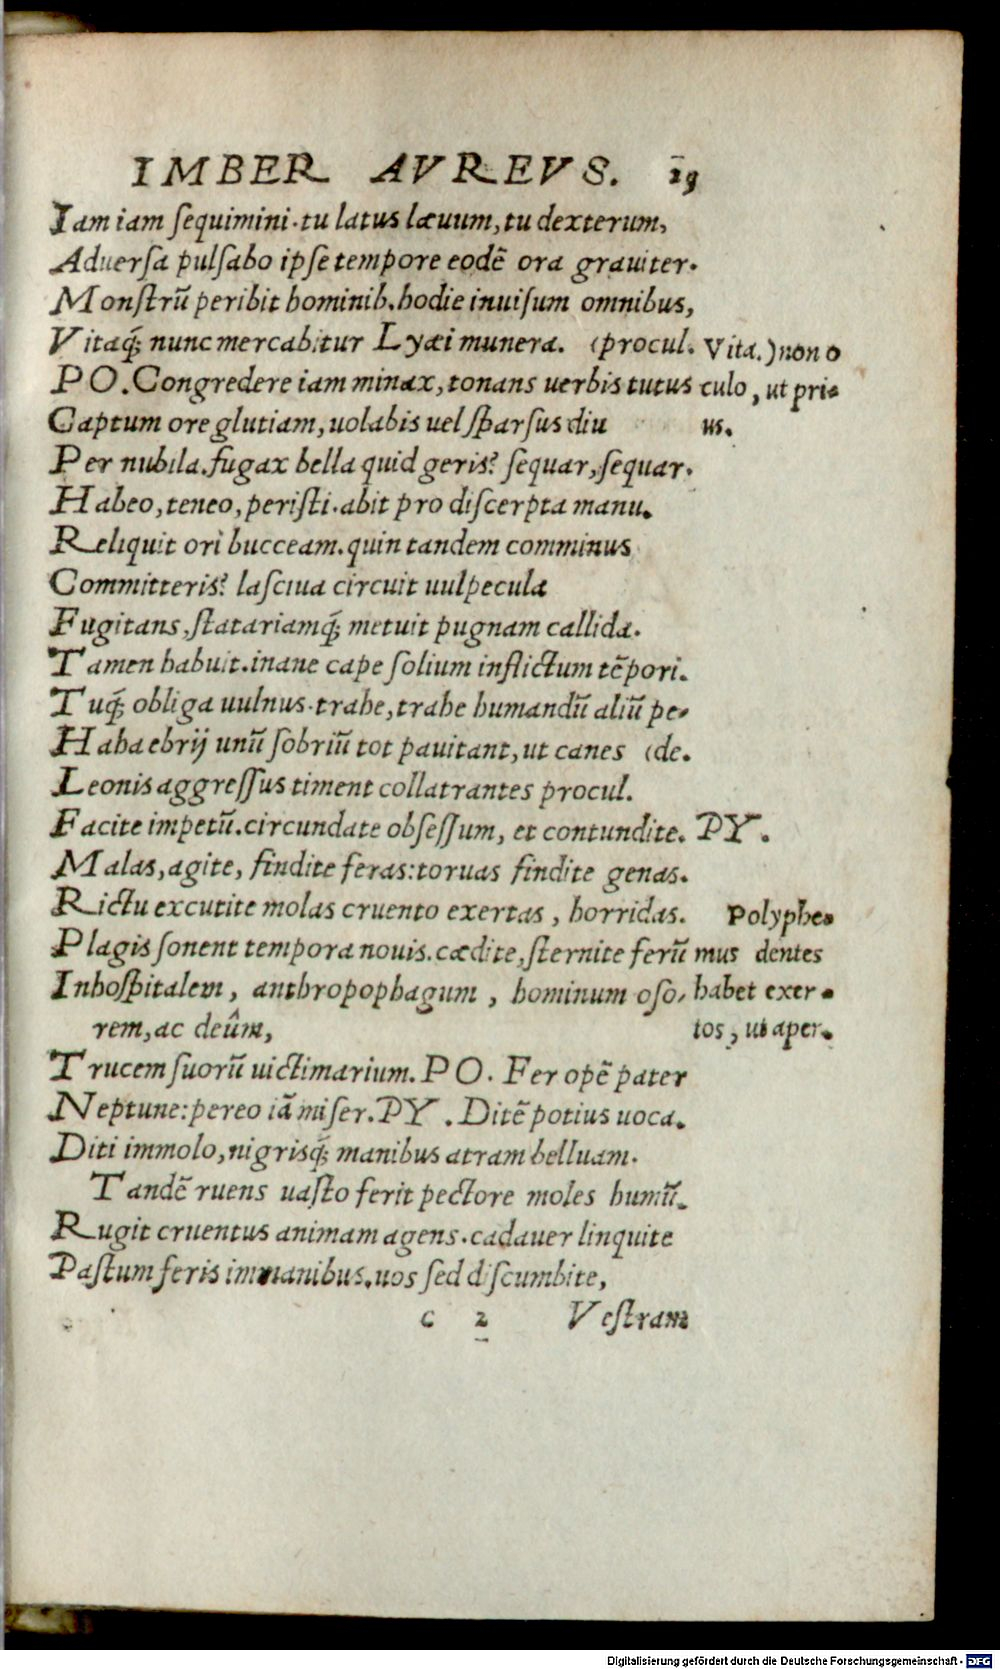 IMBER AVREVS. 19
Iam iam ſequimini. tu latus lævum, tu dexterum,
Aduerſa pulſabo ipſe tempore eodẽ ora grauiter.
Monſtrũ peribit hominib. hodie inuiſum omnibus,
Vitaq́; nunc mercabitur Lyæi munera. (procul.
Vita.) non o
PO. Congredere iam minax, tonans uerbis tutus
culo, ut pri-
Captum ore glutiam, uolabis uel ſparſus diu
us.
Per nubila. fugax bella quid geris? ſequar, ſequar.
Habeo, teneo, periſti. abit pro diſcerpta manu.
Reliquit ori bucceam. quin tandem comminus
Committeris? laſciua circuit uulpecula
Fugitans, ſtatariamq́; metuit pugnam callida.
Tamen habuit. inane cape ſolium inflictum tẽpori.
Tuq́; obliga uulnus. trahe, trahe humandũ aliũ pe-
Haha ebrij unũ ſobriũ tot pauitant, ut canes (de.
Leonis aggreſſus timent collatrantes procul.
Facite impetũ. circundate obſeſſum, et contundite. PY.
Malas, agite, findite feras: toruas findite genas.
Rictu excutite molas cruento exertas, horridas.
Polyphe-
Plagis ſonent tempora nouis. cædite, ſternite ferũ
mus dentes
Inhoſpitalem, anthropophagum, hominum oſo-
habet exer-
rem, ac deûm,
tos, ut aper.
Trucem ſuorũ uictimarium. PO. Fer opẽ pater
Neptune: pereo iã miſer. PY. Ditẽ potius uoca.
Diti immolo, nigrisq́; manibus atram belluam.
Tandẽ ruens uaſto ferit pectore moles humũ.
Rugit cruentus animam agens. cadauer linquite
Paſtum feris immanibus. uos ſed diſcumbite,
c 2 Veſtram
Digitalisierung gefördert durch die Deutsche Forschungsgemeinschaft - DFG